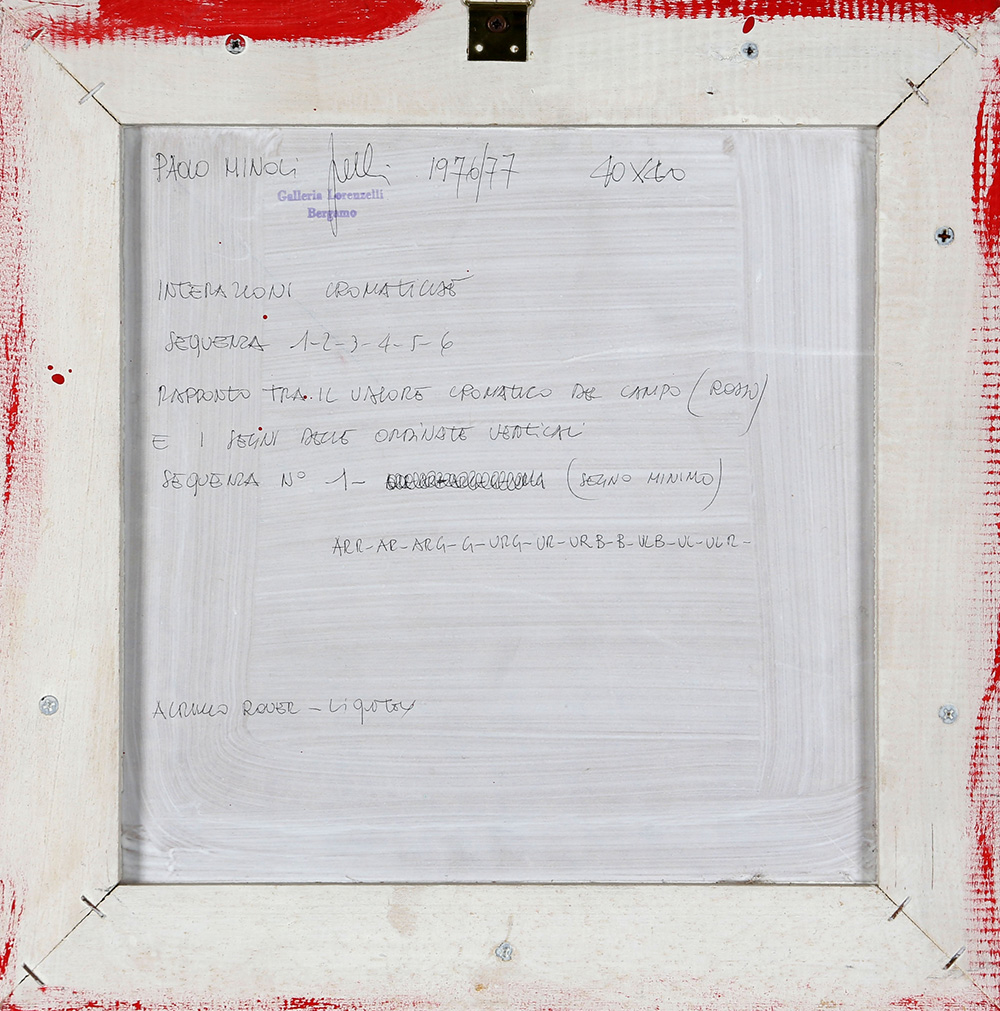 PAOLO MINOLI 1976/77 40X40
Galleria Lorenzelli
Bergamo
INTERAZIONI CROMATICHE
SEQUENZA 1-2-3-4-5-6
RAPPORTO TRA IL VALORE CROMATICO DEL CAMPO (ROSSO)
E I SEGNI DELLE ORDINATE VERTICALI
SEQUENZA N° 1- (SEGNO MINIMO)
ARR-AR-ARG-G-VRG-VR-VRB-B-VLB-VL-VLR-
ACRILICO ROWER - LiquiTex